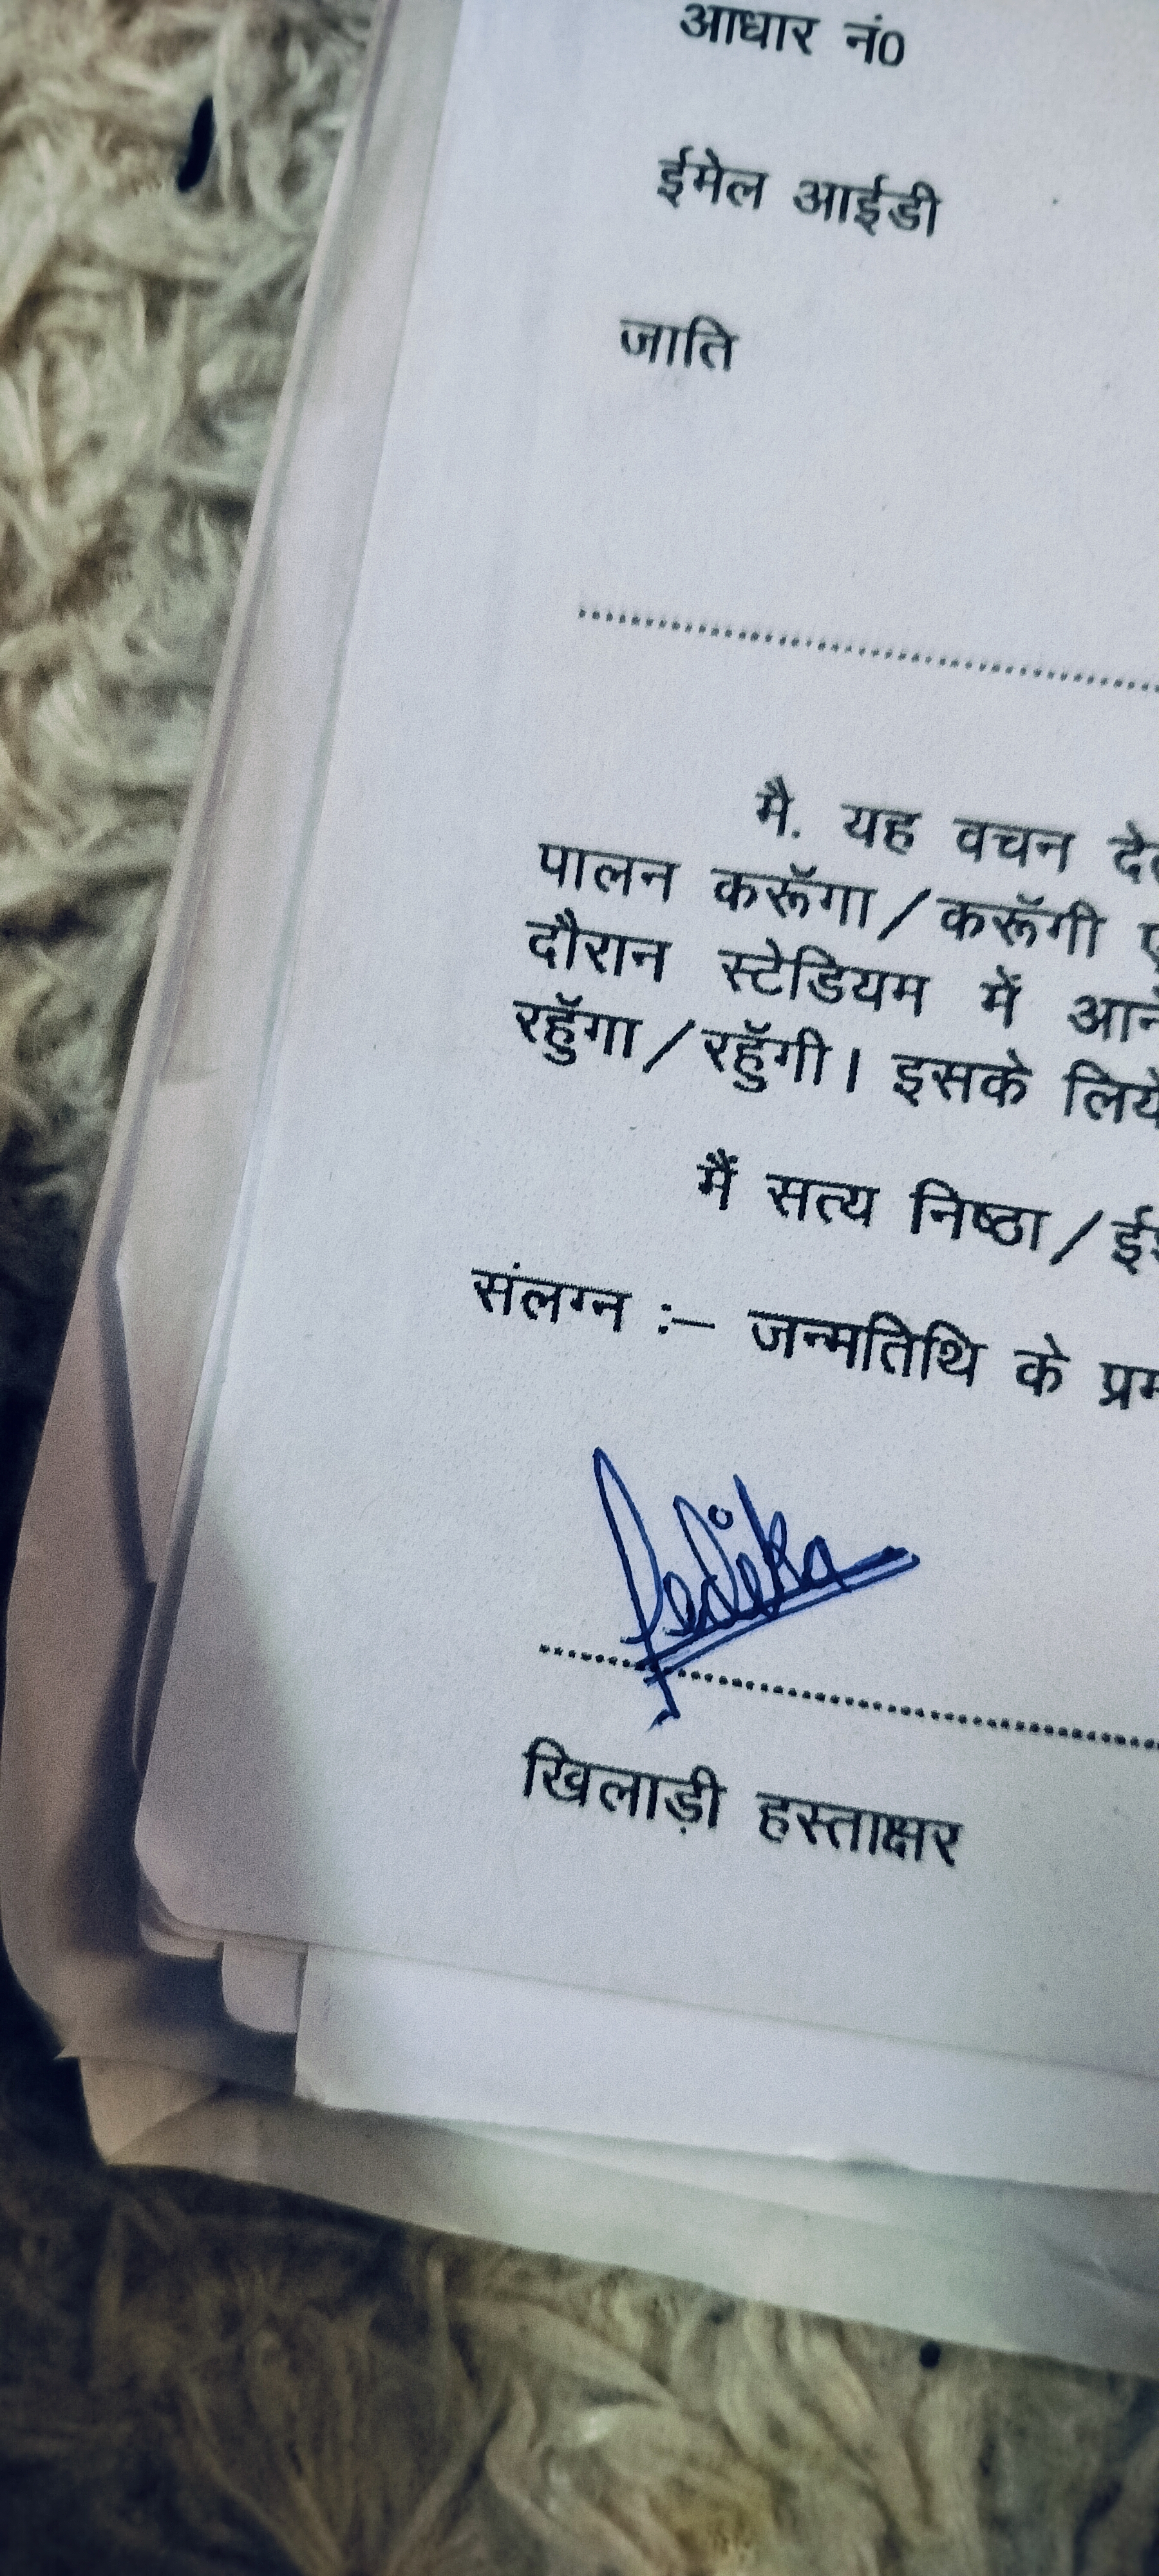 आधार नं0
ईमेल आईडी
जाति
मै. यह वचन
पालन करूॅगा/करूॅगी
दौरान स्टेडियम में
रहुॅगा/रहुॅगी। इसके लिये
मैं सत्य निष्ठा/
संलग्न :– जन्मतिथि के
खिलाड़ी हस्ताक्षर